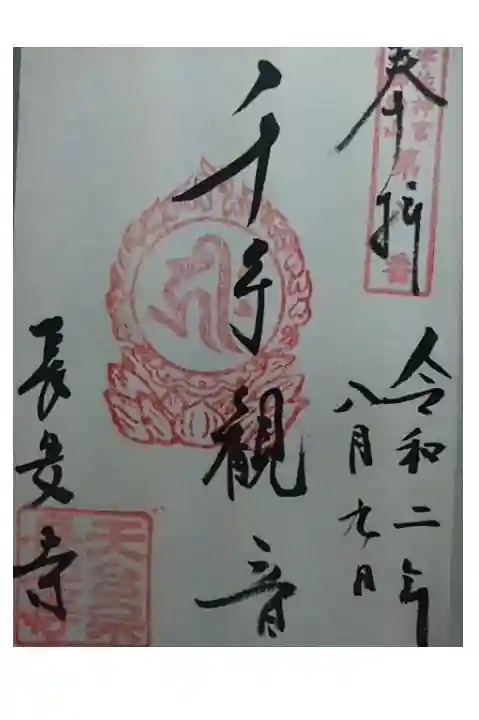 奉拝
令和二年
八月九日
千手観音
長安寺